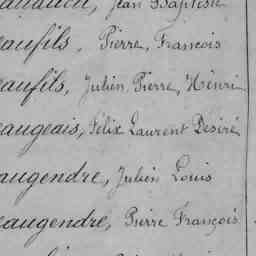 Jean Baptiste
eaufils, Pierre, François
eaufils, Julien, Pierre, Henri
eaugeais, Félix Laurent Désiré
augendre, Julien Louis
eaugendre, Pierre François